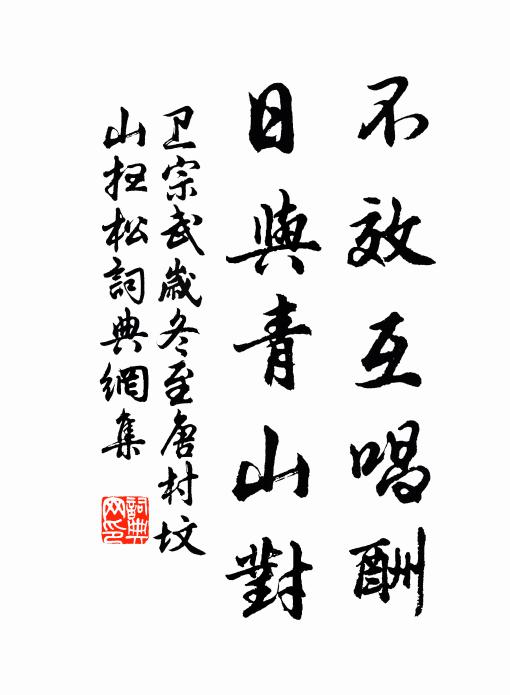 不效互唱酬
日與青山對
卫宗武歲冬至唐村坟
山拄松詞典網集
詞典網印